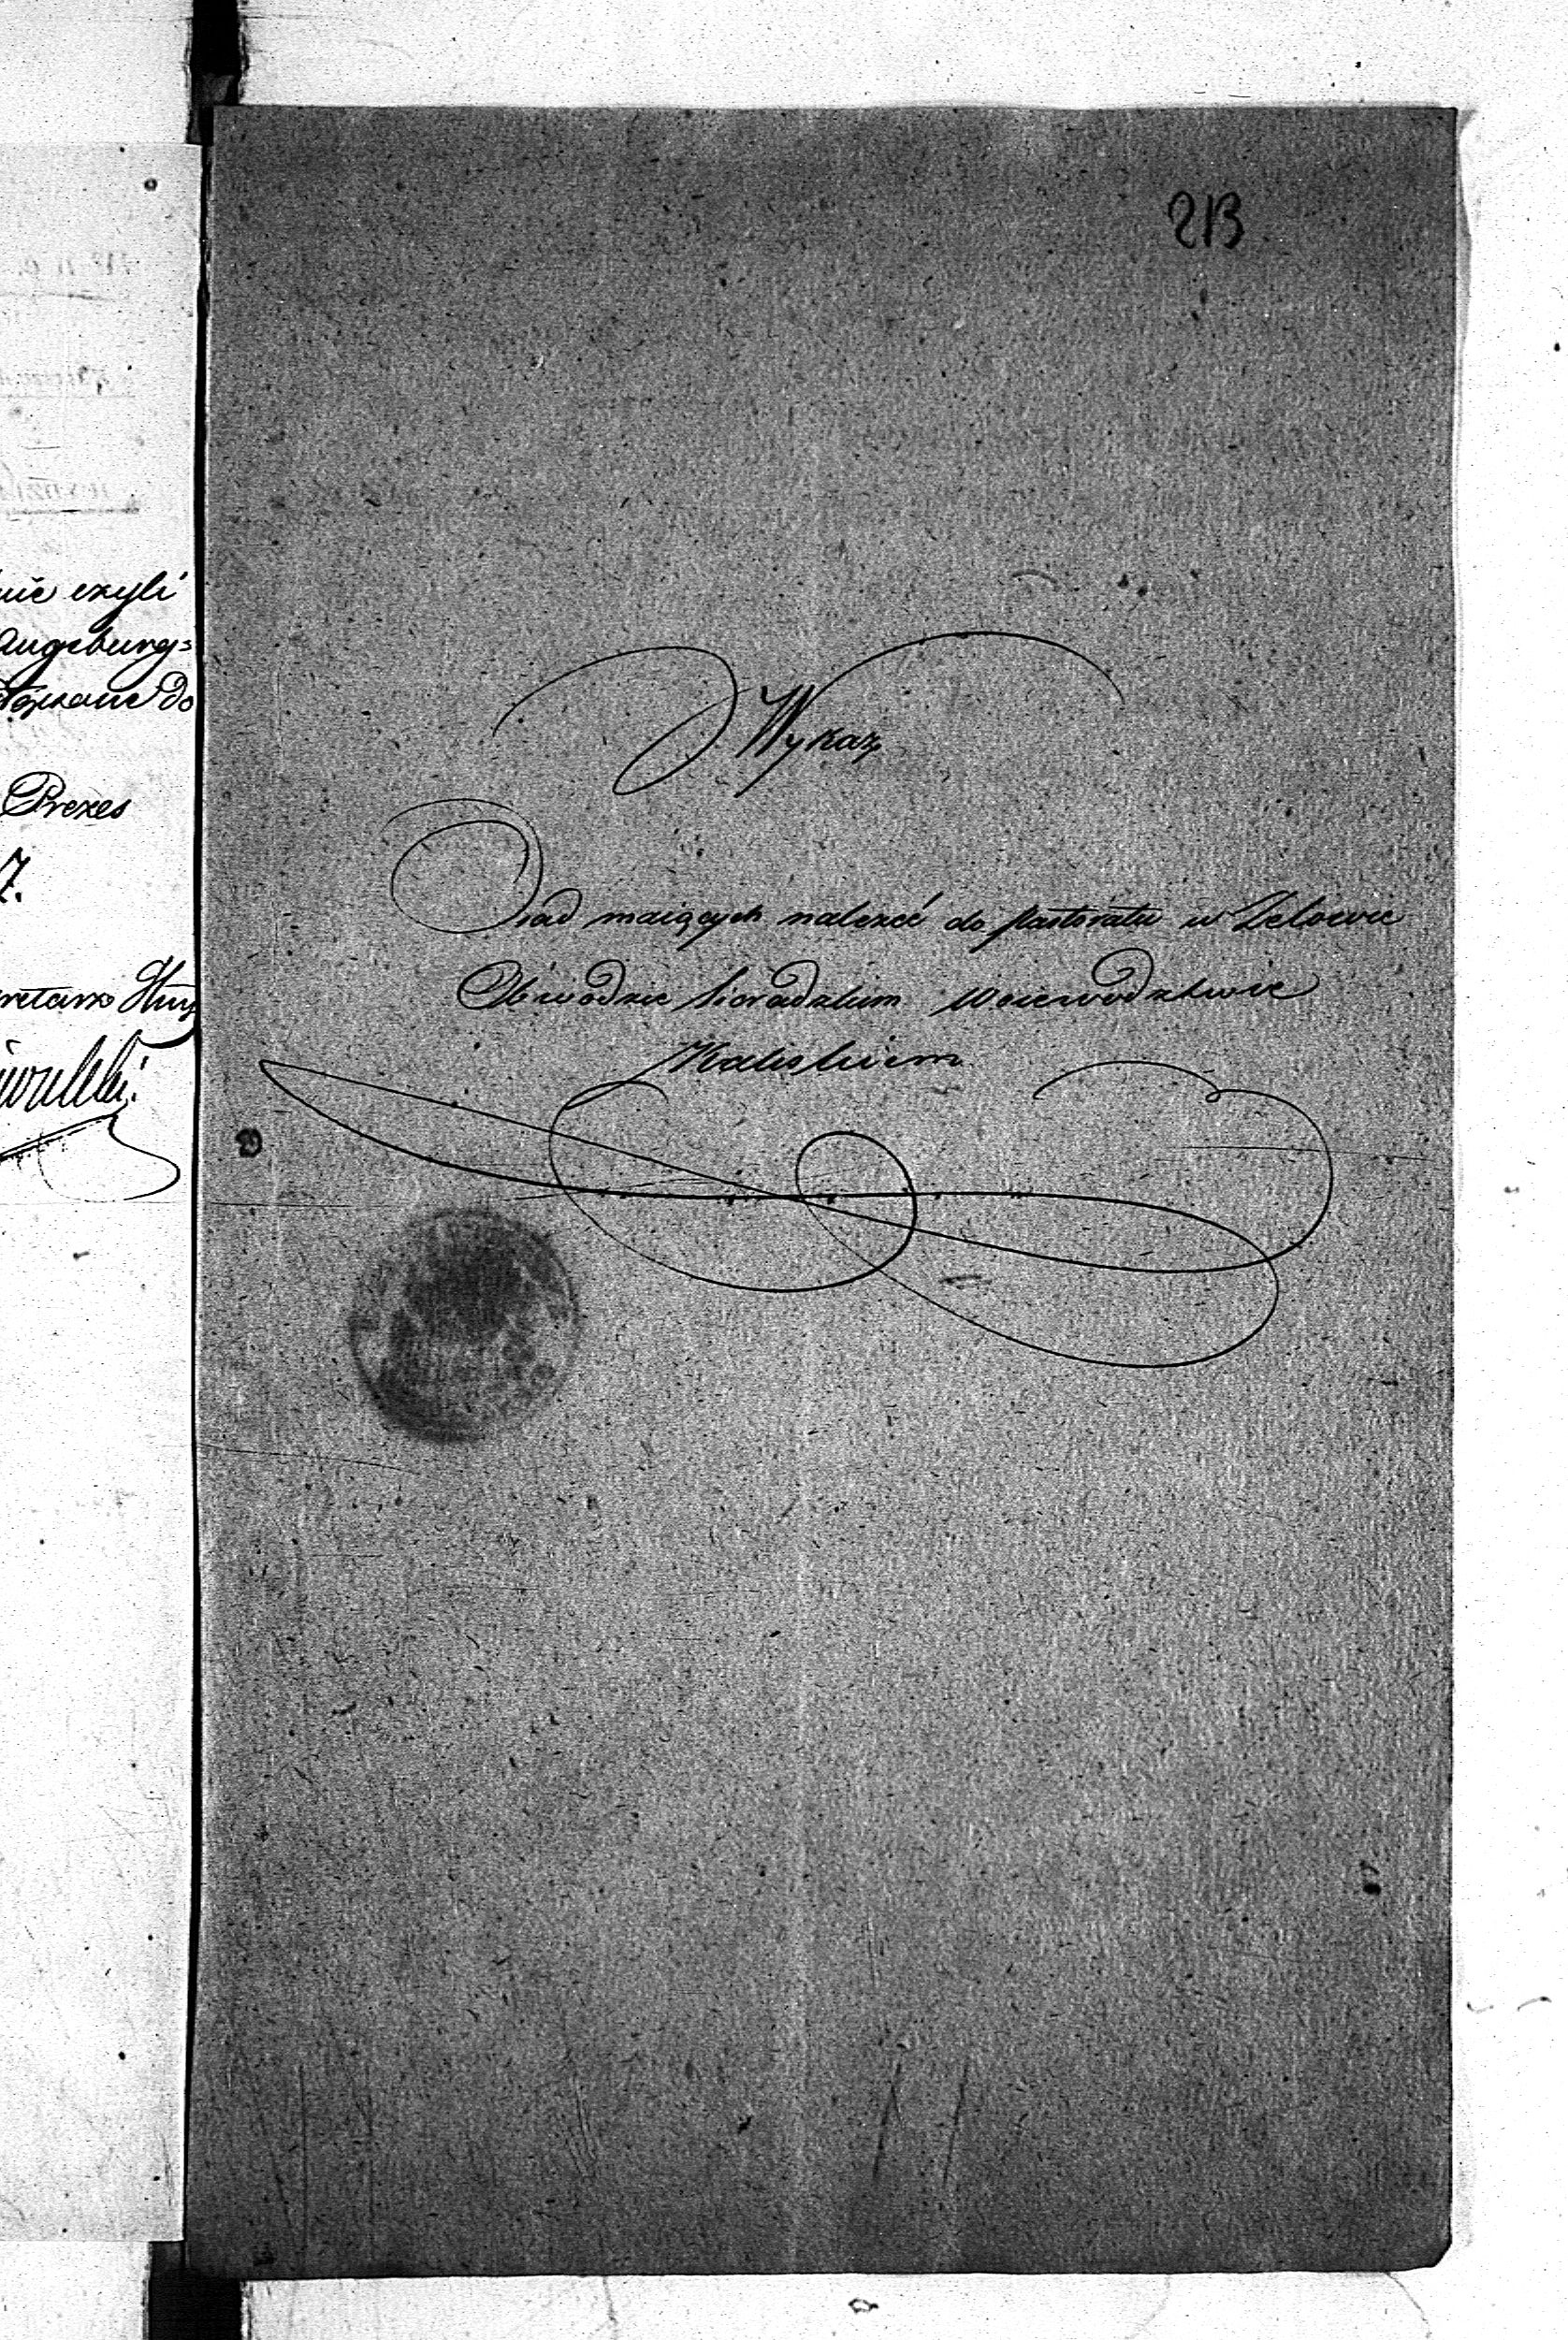 czyli
Augsburg=
do
Prezes
7.
213
Wykaz
Osad maiących należeć do pastoratu w Zelowie
Obwodzie Sieradzkim Woiewodztwie
Kaliskiem